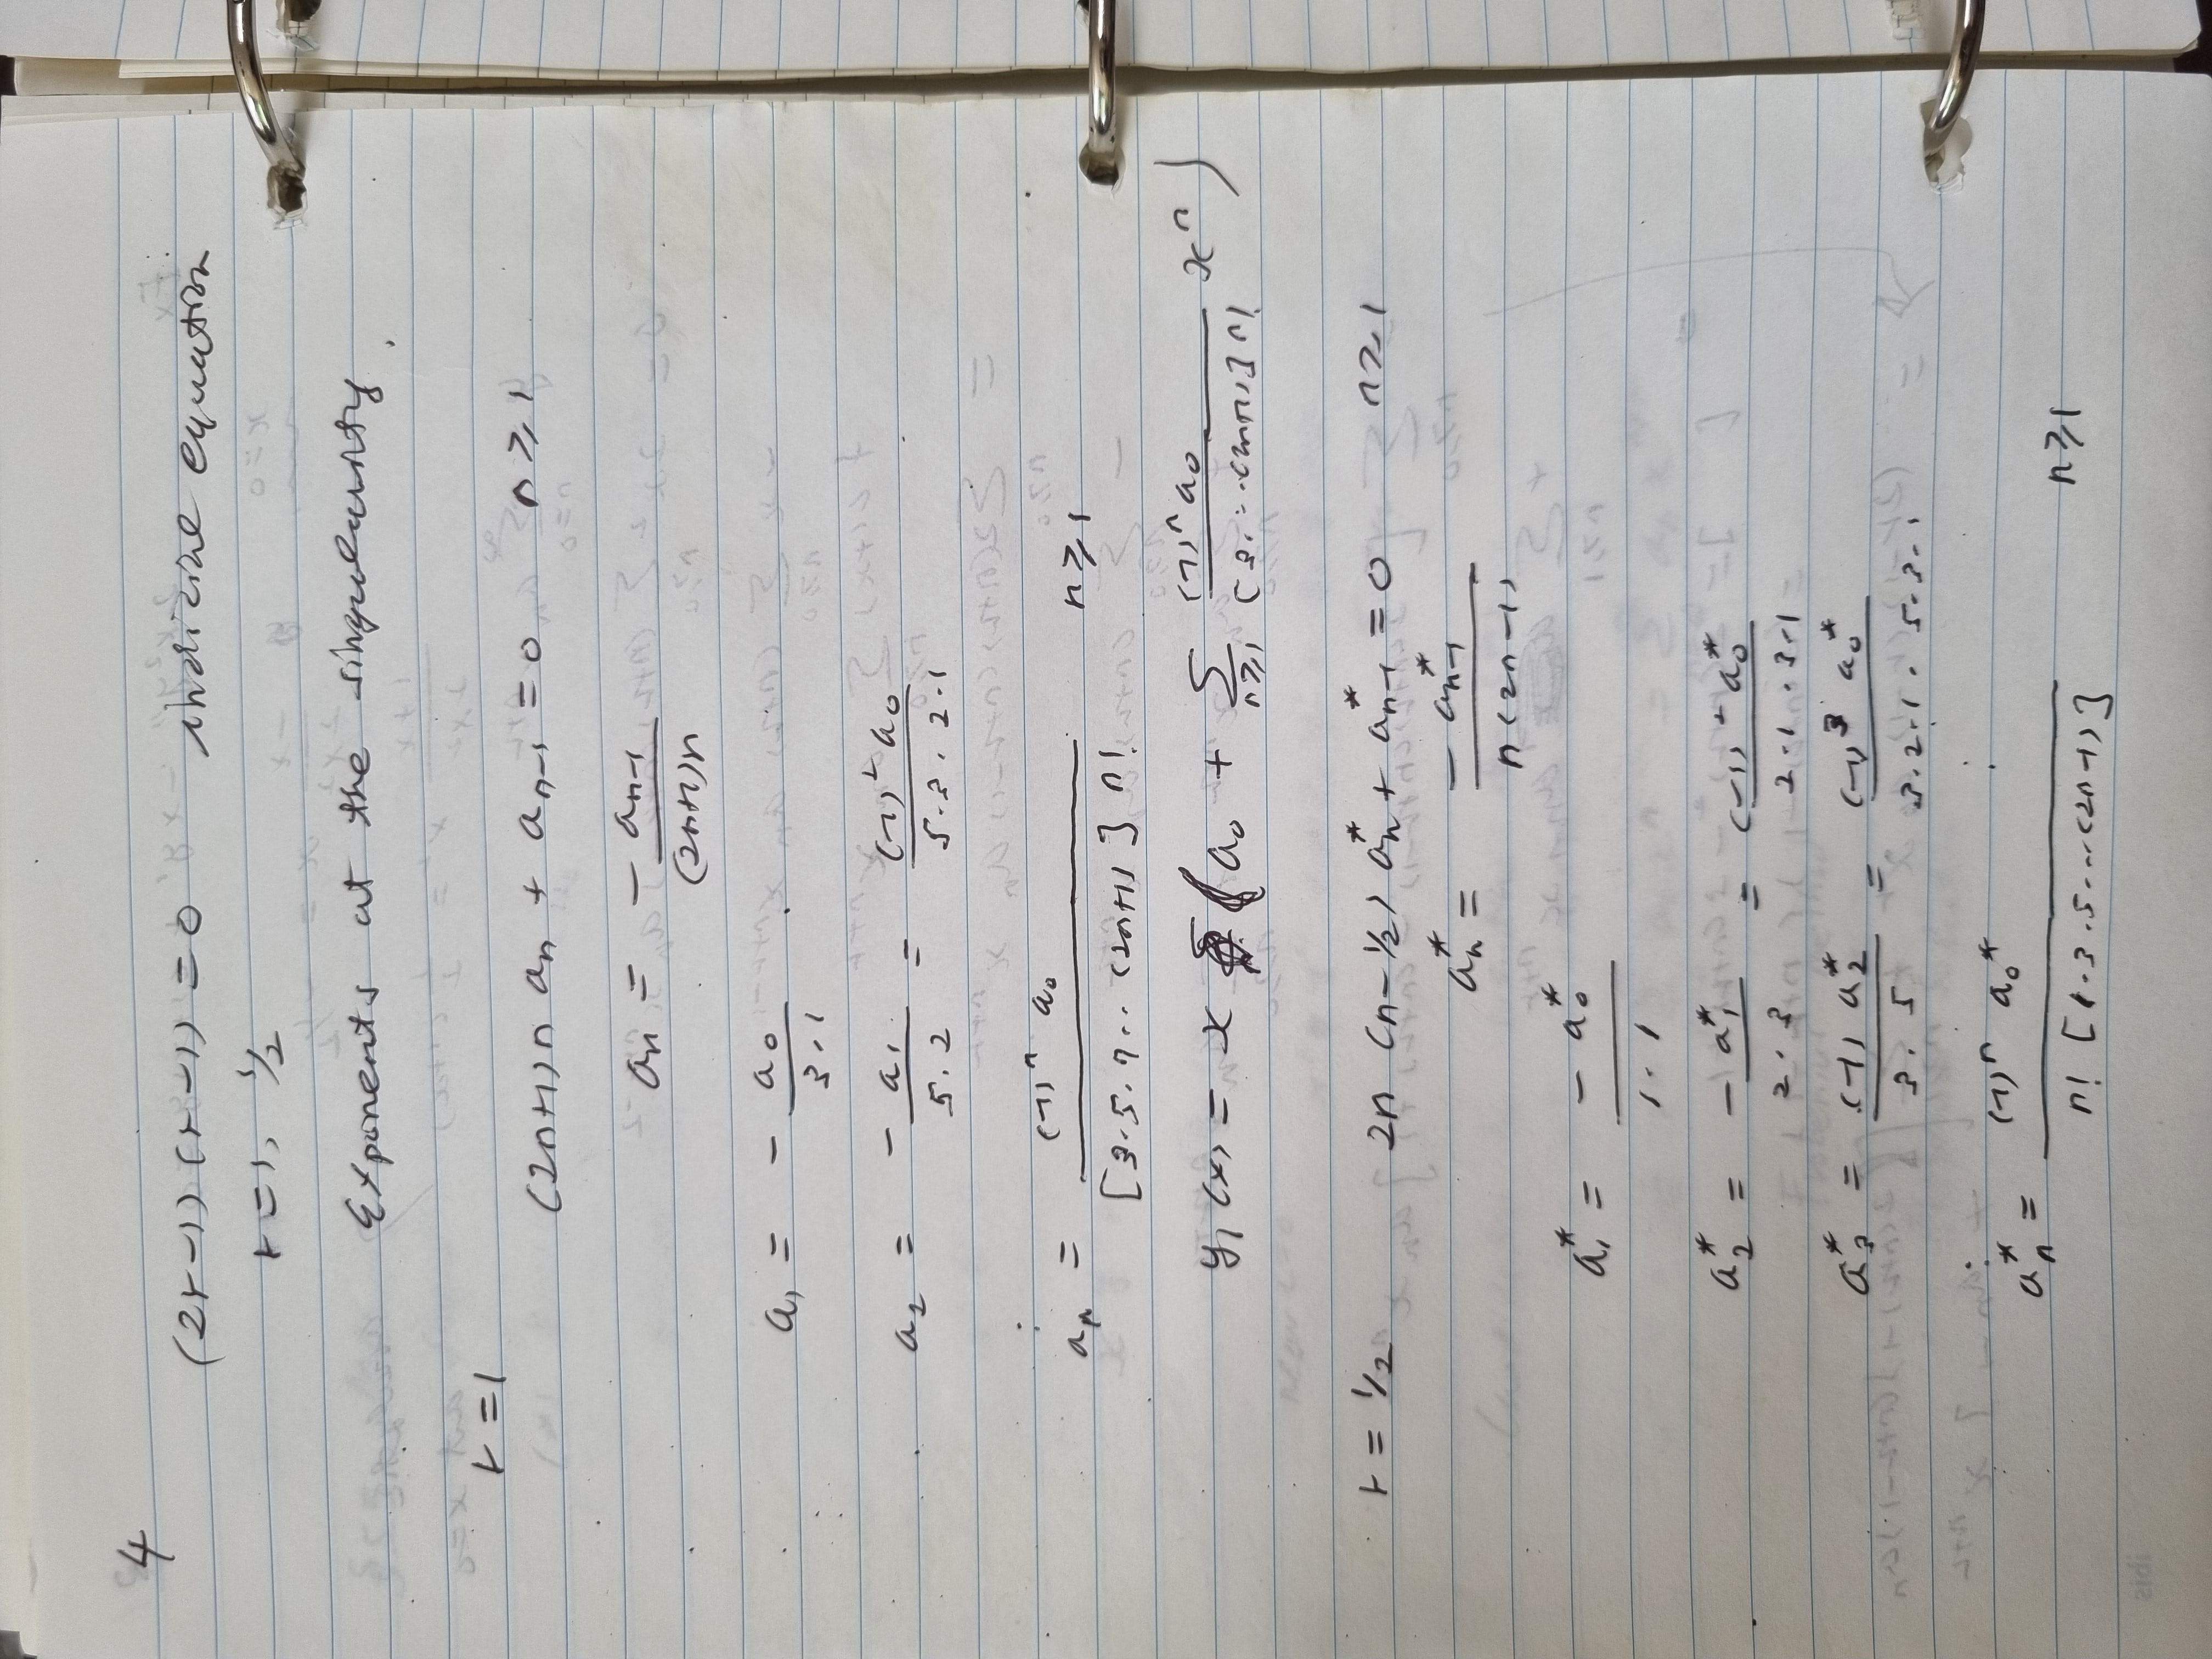 4
(2r-1)(r-1) = 0 indicial equation
r = 1, 1/2
Exponents at the singularity.
r = 1
(2n+1)n aₙ + aₙ₋₁ = 0 n ≥ 1
aₙ = - aₙ₋₁ / (2n+1)n
a₁ = - a₀ / 3·1
a₂ = - a₁ / 5·2 = (-1)² a₀ / 5·3·2·1
⋮
aₙ = (-1)ⁿ a₀ / [3·5·7··(2n+1)] n! n ≥ 1
y₁(x) = x (a₀ + Σ_{n≥1} (-1)ⁿ a₀ / [3.···(2n+1)] n! xⁿ)
r = 1/2 2n (n-1/2) aₙ* + aₙ₋₁* = 0 n ≥ 1
aₙ* = - aₙ₋₁* / n(2n-1)
a₁* = - a₀* / 1·1
a₂* = - a₁* / 2·3 = (-1)² a₀* / 2·1·3·1
a₃* = (-1) a₂* / 3·5 = (-1)³ a₀* / 3·2·1·5·3·1
⋮
aₙ* = (-1)ⁿ a₀* / n! [1·3·5···(2n-1)] n ≥ 1